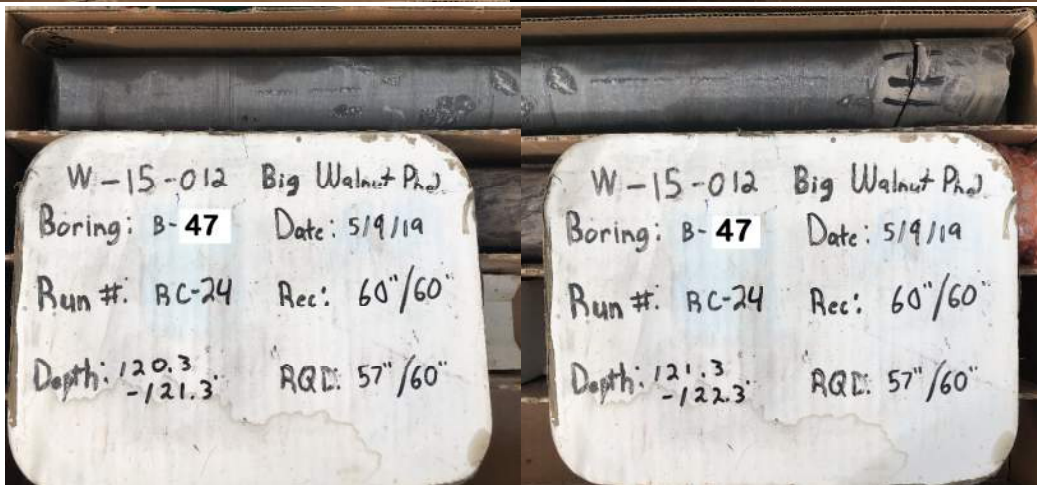 W-15-012 Big Walnut Ph2
Boring: B-47 Date: 5/9/19
Run #: RC-24 Rec: 60"/60"
Depth: 120.3
-121.3' RQD: 57"/60"
W-15-012 Big Walnut Ph2
Boring: B-47 Date: 5/9/19
Run #: RC-24 Rec: 60"/60"
Depth: 121.3
-122.3' RQD: 57"/60"